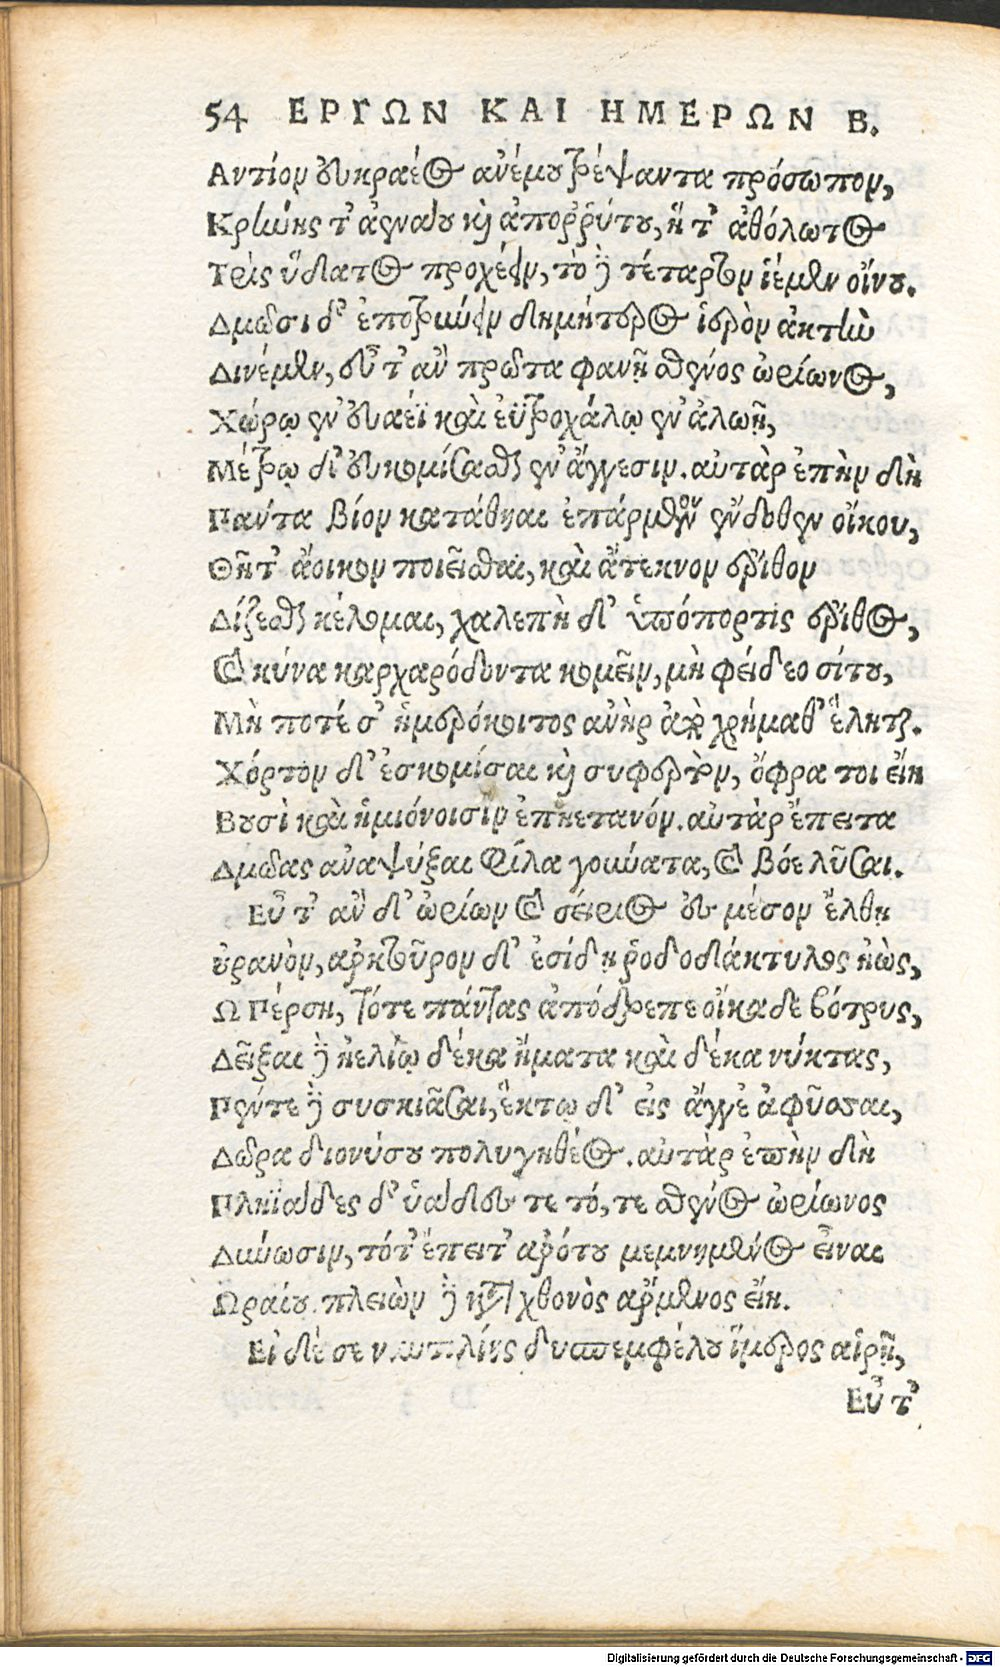 54 ΕΡΓΩΝ ΚΑΙ ΗΜΕΡΩΝ Β.
Αντίον εὐκραέος ἀνέμου τρέψαντα πρόσωπον,
Κρήνης τ' ἀενάου καὶ ἀποῤῥύτου, ἥ τ' ἀθόλωτος
Τρὶς ὕδατος προχέειν, τὸ δὲ τέταρτον ἱέμεν οἴνου.
Δμωσὶ δ' ἐποτρύνειν δημήτερος ἱερὸν ἀκτὴν
Δινέμεν, εὖτ' ἂν πρῶτα φανῇ σθένος ὠρίωνος,
Χώρῳ ἐν εὐαέϊ καὶ ἐϋτροχάλῳ ἐν ἀλωῇ,
Μέτρῳ δ' εὐκομίσασθαι ἐν ἄγγεσιν. αὐτὰρ ἐπὴν δὴ
Πάντα βίον κατάθηαι ἐπάρμενον ἔνδοθεν οἴκου,
Θῆτ' ἄοικον ποιεῖσθαι, καὶ ἄτεκνον ἔριθον
Δίζεσθαι κέλομαι, χαλεπὴ δ' ὑπόπορτις ἔριθος,
Καὶ κύνα καρχαρόδοντα κομεῖν, μὴ φείδεο σίτου,
Μὴ ποτέ σ' ἡμερόκοιτος ἀνὴρ ἀπὸ χρήμαθ' ἕληται.
Χόρτον δ' ἐσκομίσαι καὶ συρφετὸν, ὄφρα τοι εἴη
Βουσὶ καὶ ἡμιόνοισιν ἐπηετανόν. αὐτὰρ ἔπειτα
Δμῶας ἀναψύξαι φίλα γούνατα, καὶ βόε λῦσαι.
Εὖτ' ἂν δ' ὠρίων καὶ σείριος ἐς μέσον ἔλθῃ
οὐρανὸν, ἀρκτοῦρον δ' ἐσίδῃ ῥοδοδάκτυλος ἠὼς,
Ω Πέρση, τότε πάντας ἀπόδρεπε οἴκαδε βότρυς,
Δεῖξαι δ' ἠελίῳ δέκα ἤματα καὶ δέκα νύκτας,
Πέντε δὲ συσκιᾶσαι, ἕκτῳ δ' εἰς ἄγγε' ἀφύσσαι,
Δῶρα διονύσου πολυγηθέος. αὐτὰρ ἐπὴν δὴ
Πληϊάδες θ' ὑάδες τε τό, τε σθένος ὠρίωνος
Δύνωσιν, τότ' ἔπειτ' ἀρότου μεμνημένος εἶναι
Ωραίου. πλειὼν δὲ κατὰ χθονὸς ἄρμενος εἴη.
Εἰ δέ σε ναυτιλίης δυσπεμφέλου ἵμερος αἱρῇ,
Εὖτ'
Digitalisierung gefördert durch die Deutsche Forschungsgemeinschaft - DFG